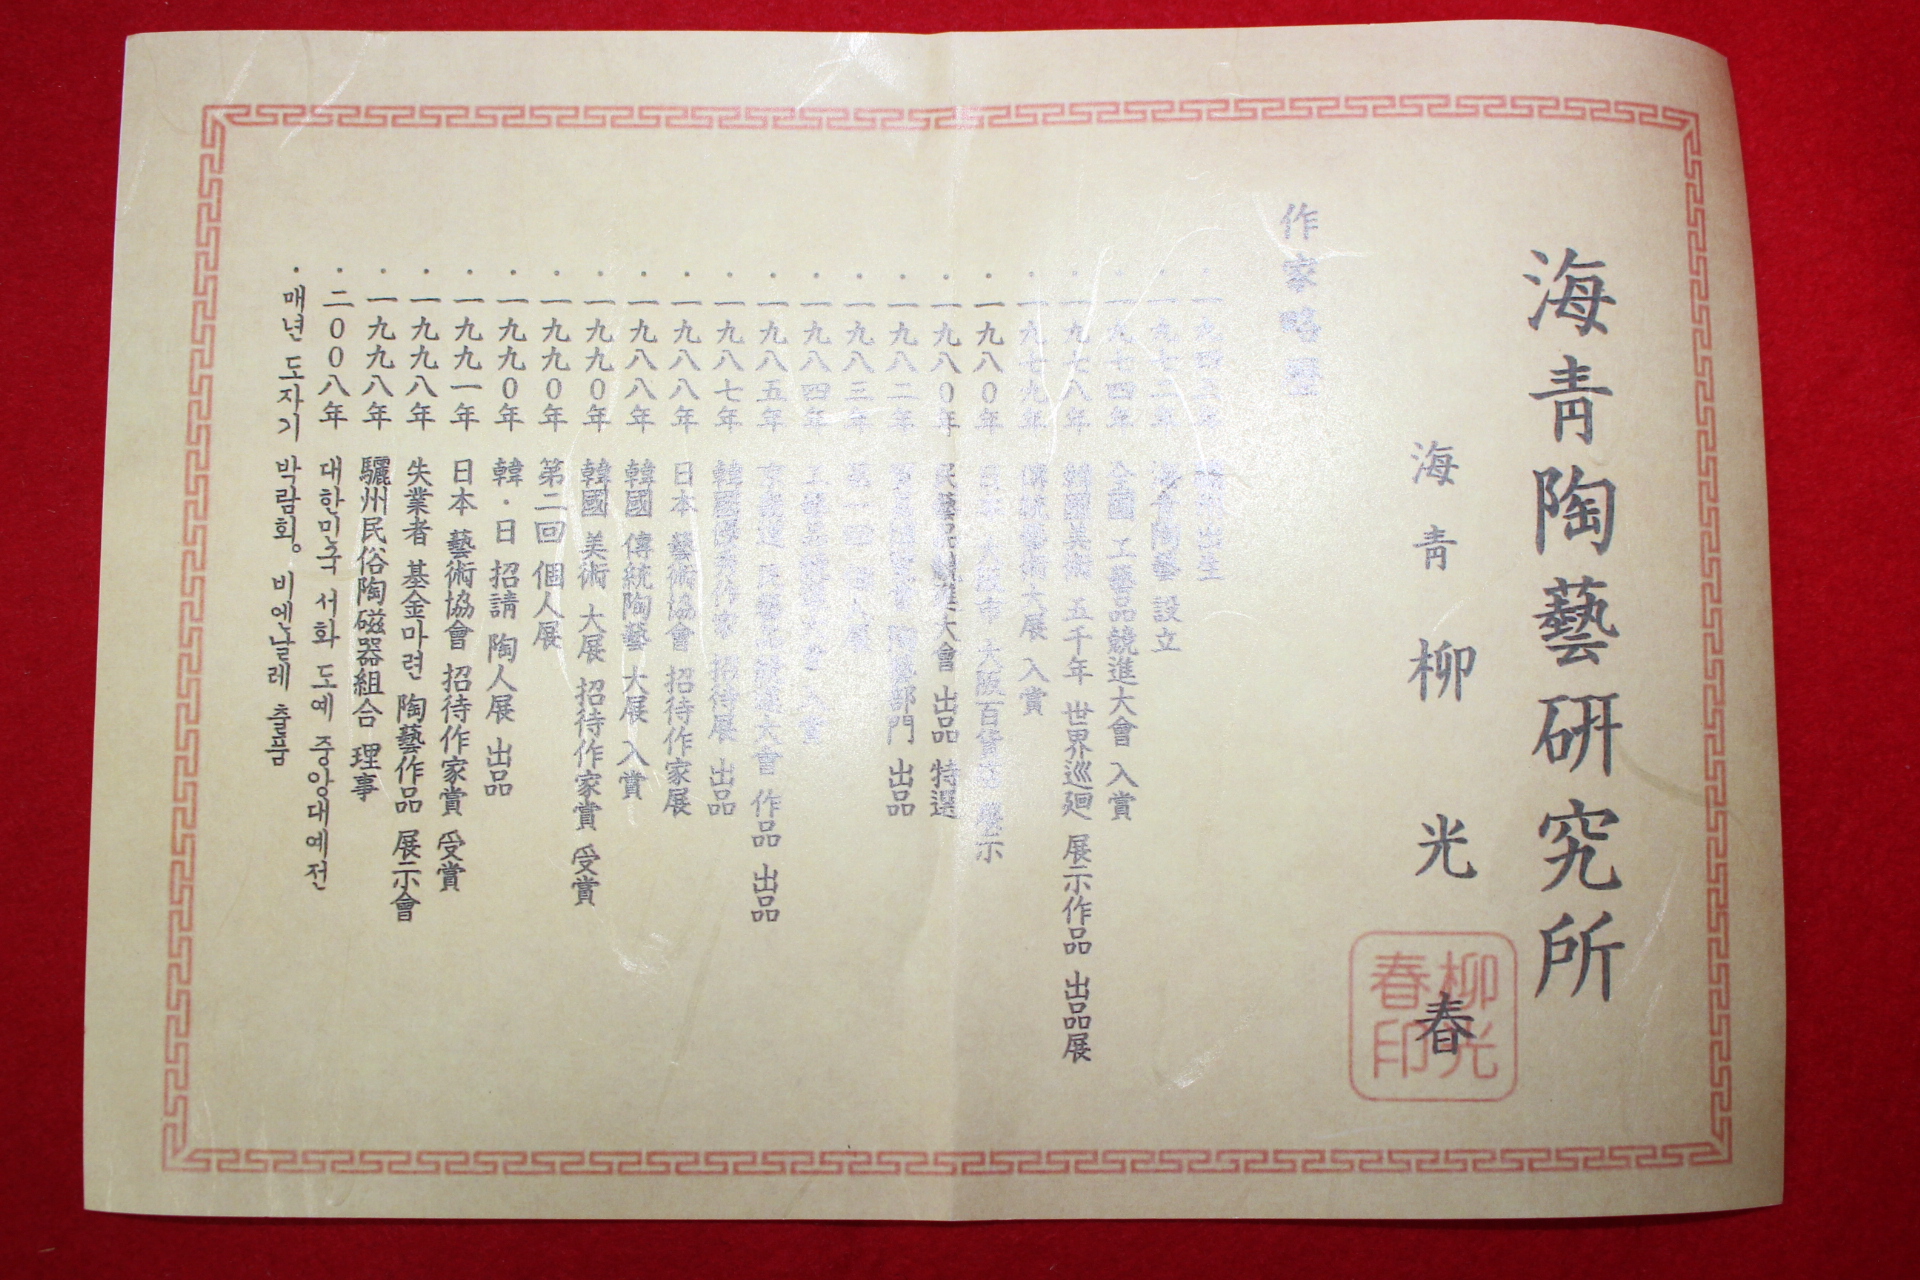 海青陶藝硏究所
海青 柳光春
柳光春印
作家略歷
· 一九四 年 出生
· 一九七 年 海青陶藝 設立
· 一九七四年 全國 工藝品競進大會 入賞
· 一九七八年 韓國美術 五千年 世界巡廻 展示作品 出品展
· 一九七九年 傳統藝術大展 入賞
· 一九八0年 大阪市 大阪百貨店 展示
· 一九八0年 民藝品競進大會 出品 特選
· 一九八二年 陶藝部門 出品
· 一九八三年 第一回 個人展
· 一九八四年 入賞
· 一九八五年 京畿道 民藝品競進大會 作品 出品
· 一九八七年 韓國優秀作家 招待展 出品
· 一九八八年 日本 藝術協會 招待作家展
· 一九八八年 韓國 傳統陶藝 大展 入賞
· 一九九0年 韓國 美術 大展 招待作家賞 受賞
· 一九九0年 第二回 個人展
· 一九九0年 韓·日 招請 陶人展 出品
· 一九九一年 日本 藝術協會 招待作家賞 受賞
· 一九九八年 失業者 基金마련 陶藝作品 展示會
· 一九九八年 驪州民俗陶磁器組合 理事
· 二00八年 대한민국 서화 도예 중앙대예전
· 매년 도자기 박람회。 비엔날레 출품